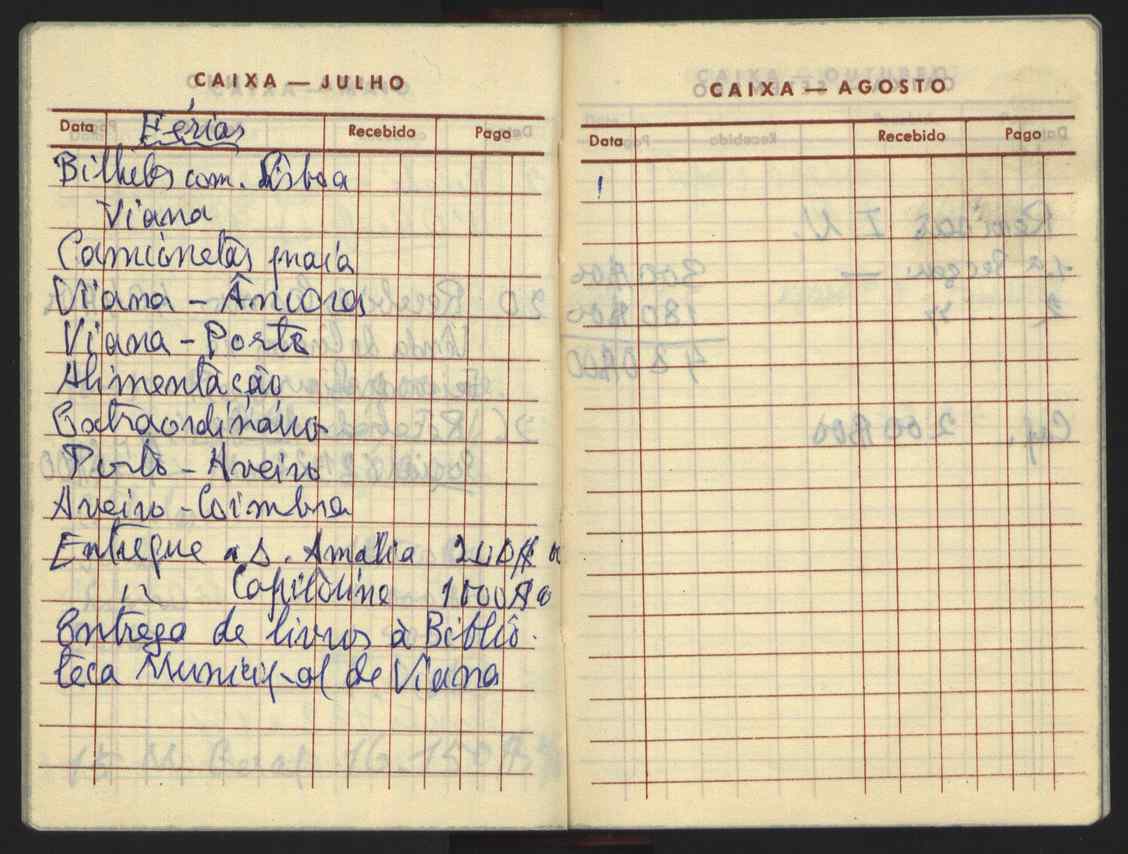 CAIXA — JULHO
Data Férias Recebido Pago
Bilhetes com. Lisboa
Viana
Camionetas praia
Viana - Âncora
Viana - Porto
Alimentação
Extraordinário
Porto - Aveiro
Aveiro - Coimbra
Entregue a D. Amália
" Capitolina 1000$00
Entrega de livros à Biblio-
teca Municipal de Viana
CAIXA — AGOSTO
Data Recebido Pago